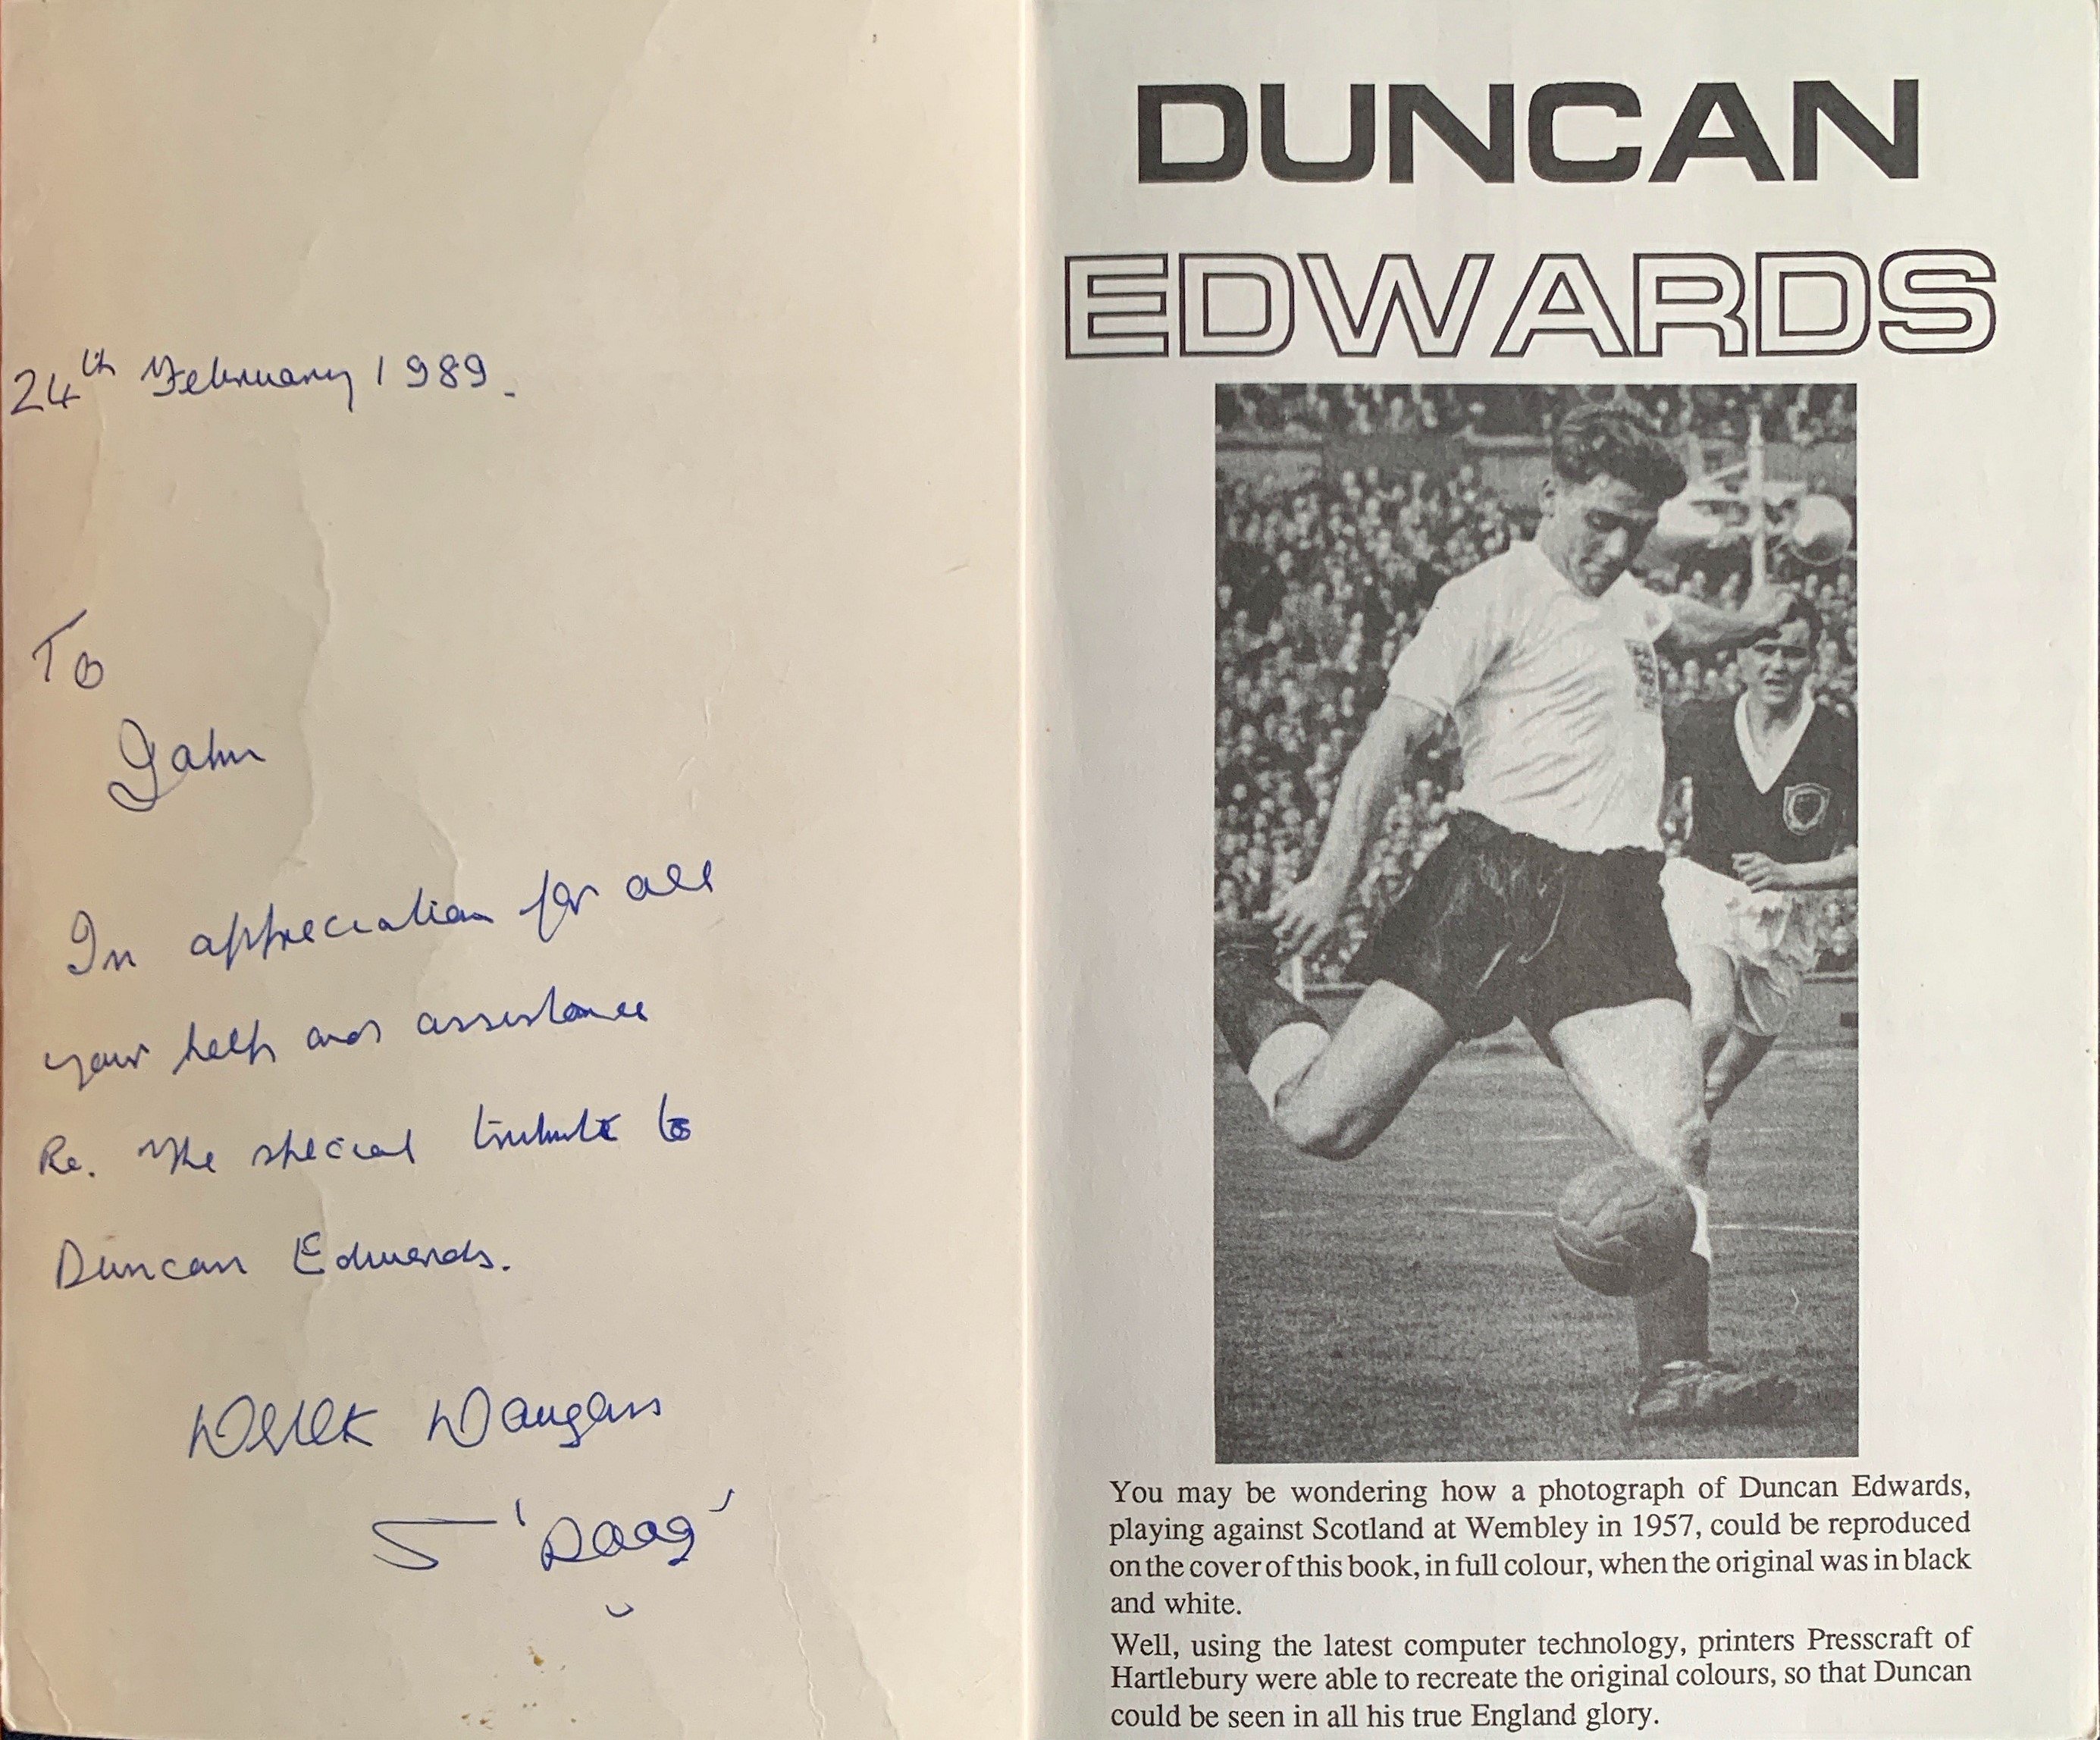 24th February 1989.
To
John
In appreciation for all
your help and assistance
Re. The special tribute to
Duncan Edwards.
Derek Dougan
'Doog'
DUNCAN
EDWARDS
You may be wondering how a photograph of Duncan Edwards,
playing against Scotland at Wembley in 1957, could be reproduced
on the cover of this book, in full colour, when the original was in black
and white.
Well, using the latest computer technology, printers Presscraft of
Hartlebury were able to recreate the original colours, so that Duncan
could be seen in all his true England glory.